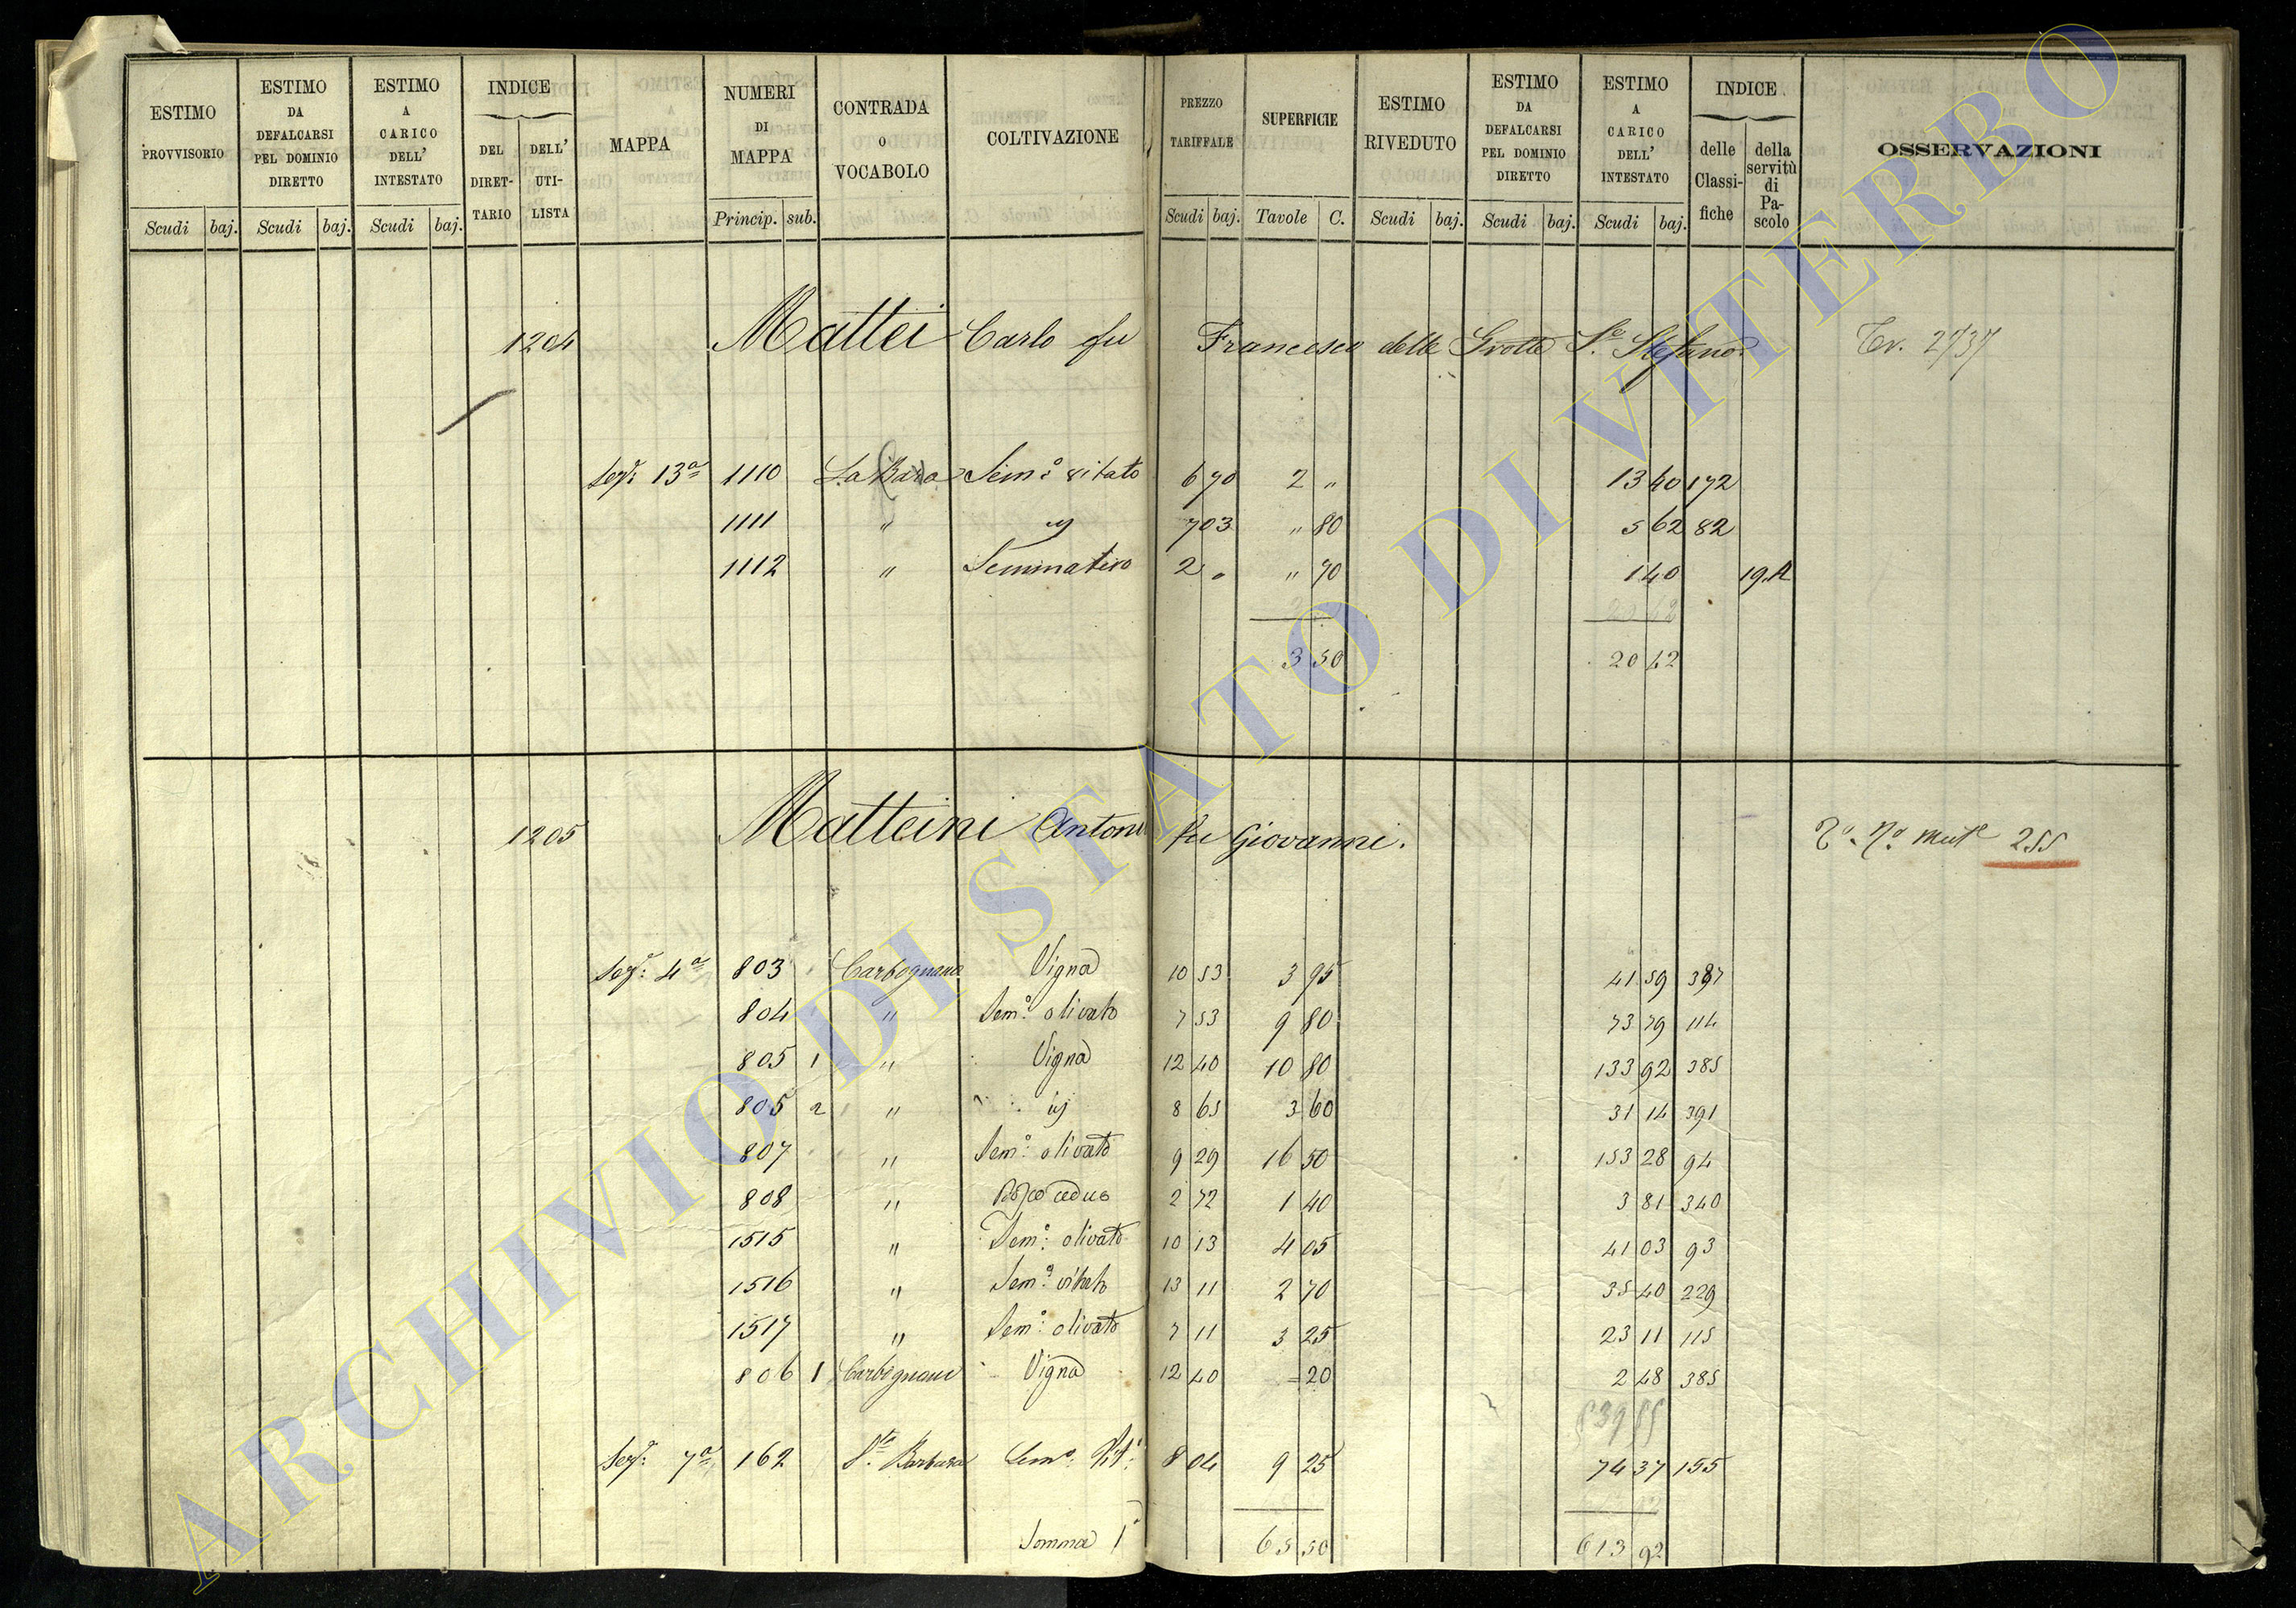 ESTIMO PROVVISORIO Scudi baj.
ESTIMO DA DEFALCARSI PEL DOMINIO DIRETTO Scudi baj.
ESTIMO A CARICO DELL' INTESTATO Scudi baj.
INDICE DEL DIRET-TARIO DELL' UTI-LISTA
MAPPA
NUMERI DI MAPPA Princip. sub.
CONTRADA O VOCABOLO
COLTIVAZIONE
PREZZO TARIFFALE Scudi baj.
SUPERFICIE Tavole C.
ESTIMO RIVEDUTO Scudi baj.
ESTIMO DA DEFALCARSI PEL DOMINIO DIRETTO Scudi baj.
ESTIMO A CARICO DELL' INTESTATO Scudi baj.
INDICE delle Classi-fiche della servitù di Pa-scolo
OSSERVAZIONI
1204 Mattei Carlo fu Francesco delle Grotte S. Stefano Tr. 2737
Sez: 13a 1110 La Bara Sem: vitato 6 70 2 " 13 40 172
1111 " " 7 03 " 80 5 62 82
1112 " Seminativo 2 " " 70 1 40 19.A
3 50 20 42
1205 Matteini Antonio fu Giovanni. 255
Sez: 4a 803 Carbognana Vigna 10 53 3 95 41 59 387
804 " Sem: olivato 7 53 9 80 73 79 114
805 1 " Vigna 12 40 10 80 133 92 385
805 2 " id 8 65 3 60 31 14 391
807 " Sem: olivato 9 29 16 50 153 28 94
808 " Bosco ceduo 2 72 1 40 3 81 340
1515 " Sem: olivato 10 13 4 05 41 03 93
1516 " Sem: vitato 13 11 2 70 35 40 229
1517 " Sem: olivato 7 11 3 25 23 11 115
806 1 Carbognana Vigna 12 40 - 20 2 48 385
539 55
Sez: 7a 162 Sta Barbara Sem: Vit: 8 04 9 25 74 37 155
Somma 65 50 613 92
ARCHIVIO DI STATO DI VITERBO